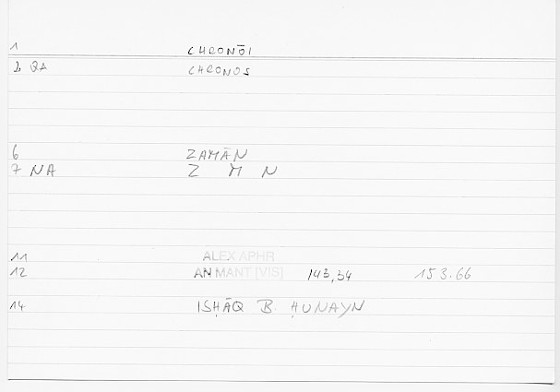 1 CHRONŌI
2 QA CHRONOS
6 ZAMĀN
7 NA Z M N
11 ALEX APHR
12 AN MANT [VIS] 143,34 153.66
14 ISḤĀQ B ḤUNAYN